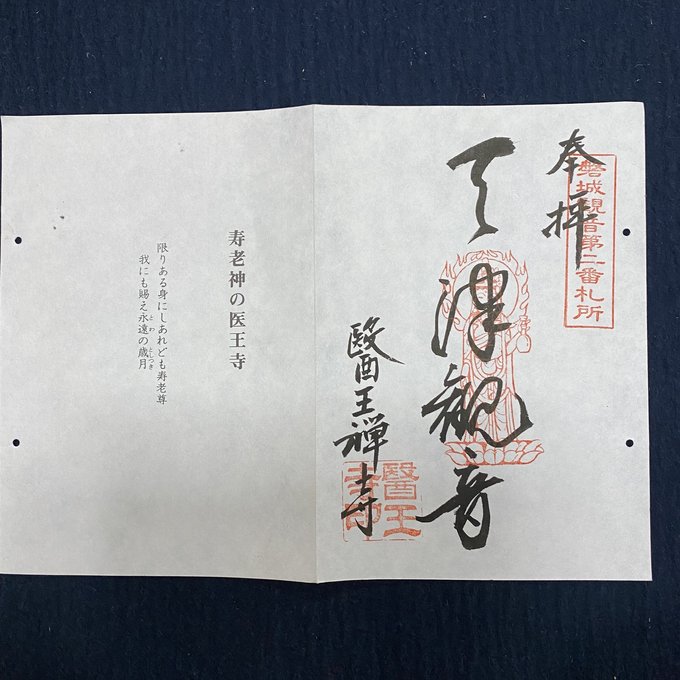 奉拝
磐城観音第二番札所
天津観音
醫王禅寺
醫王寺印
寿老神の医王寺
限りある身にしあれども寿老尊
我にも賜え永遠の歳月
とわ
としつき